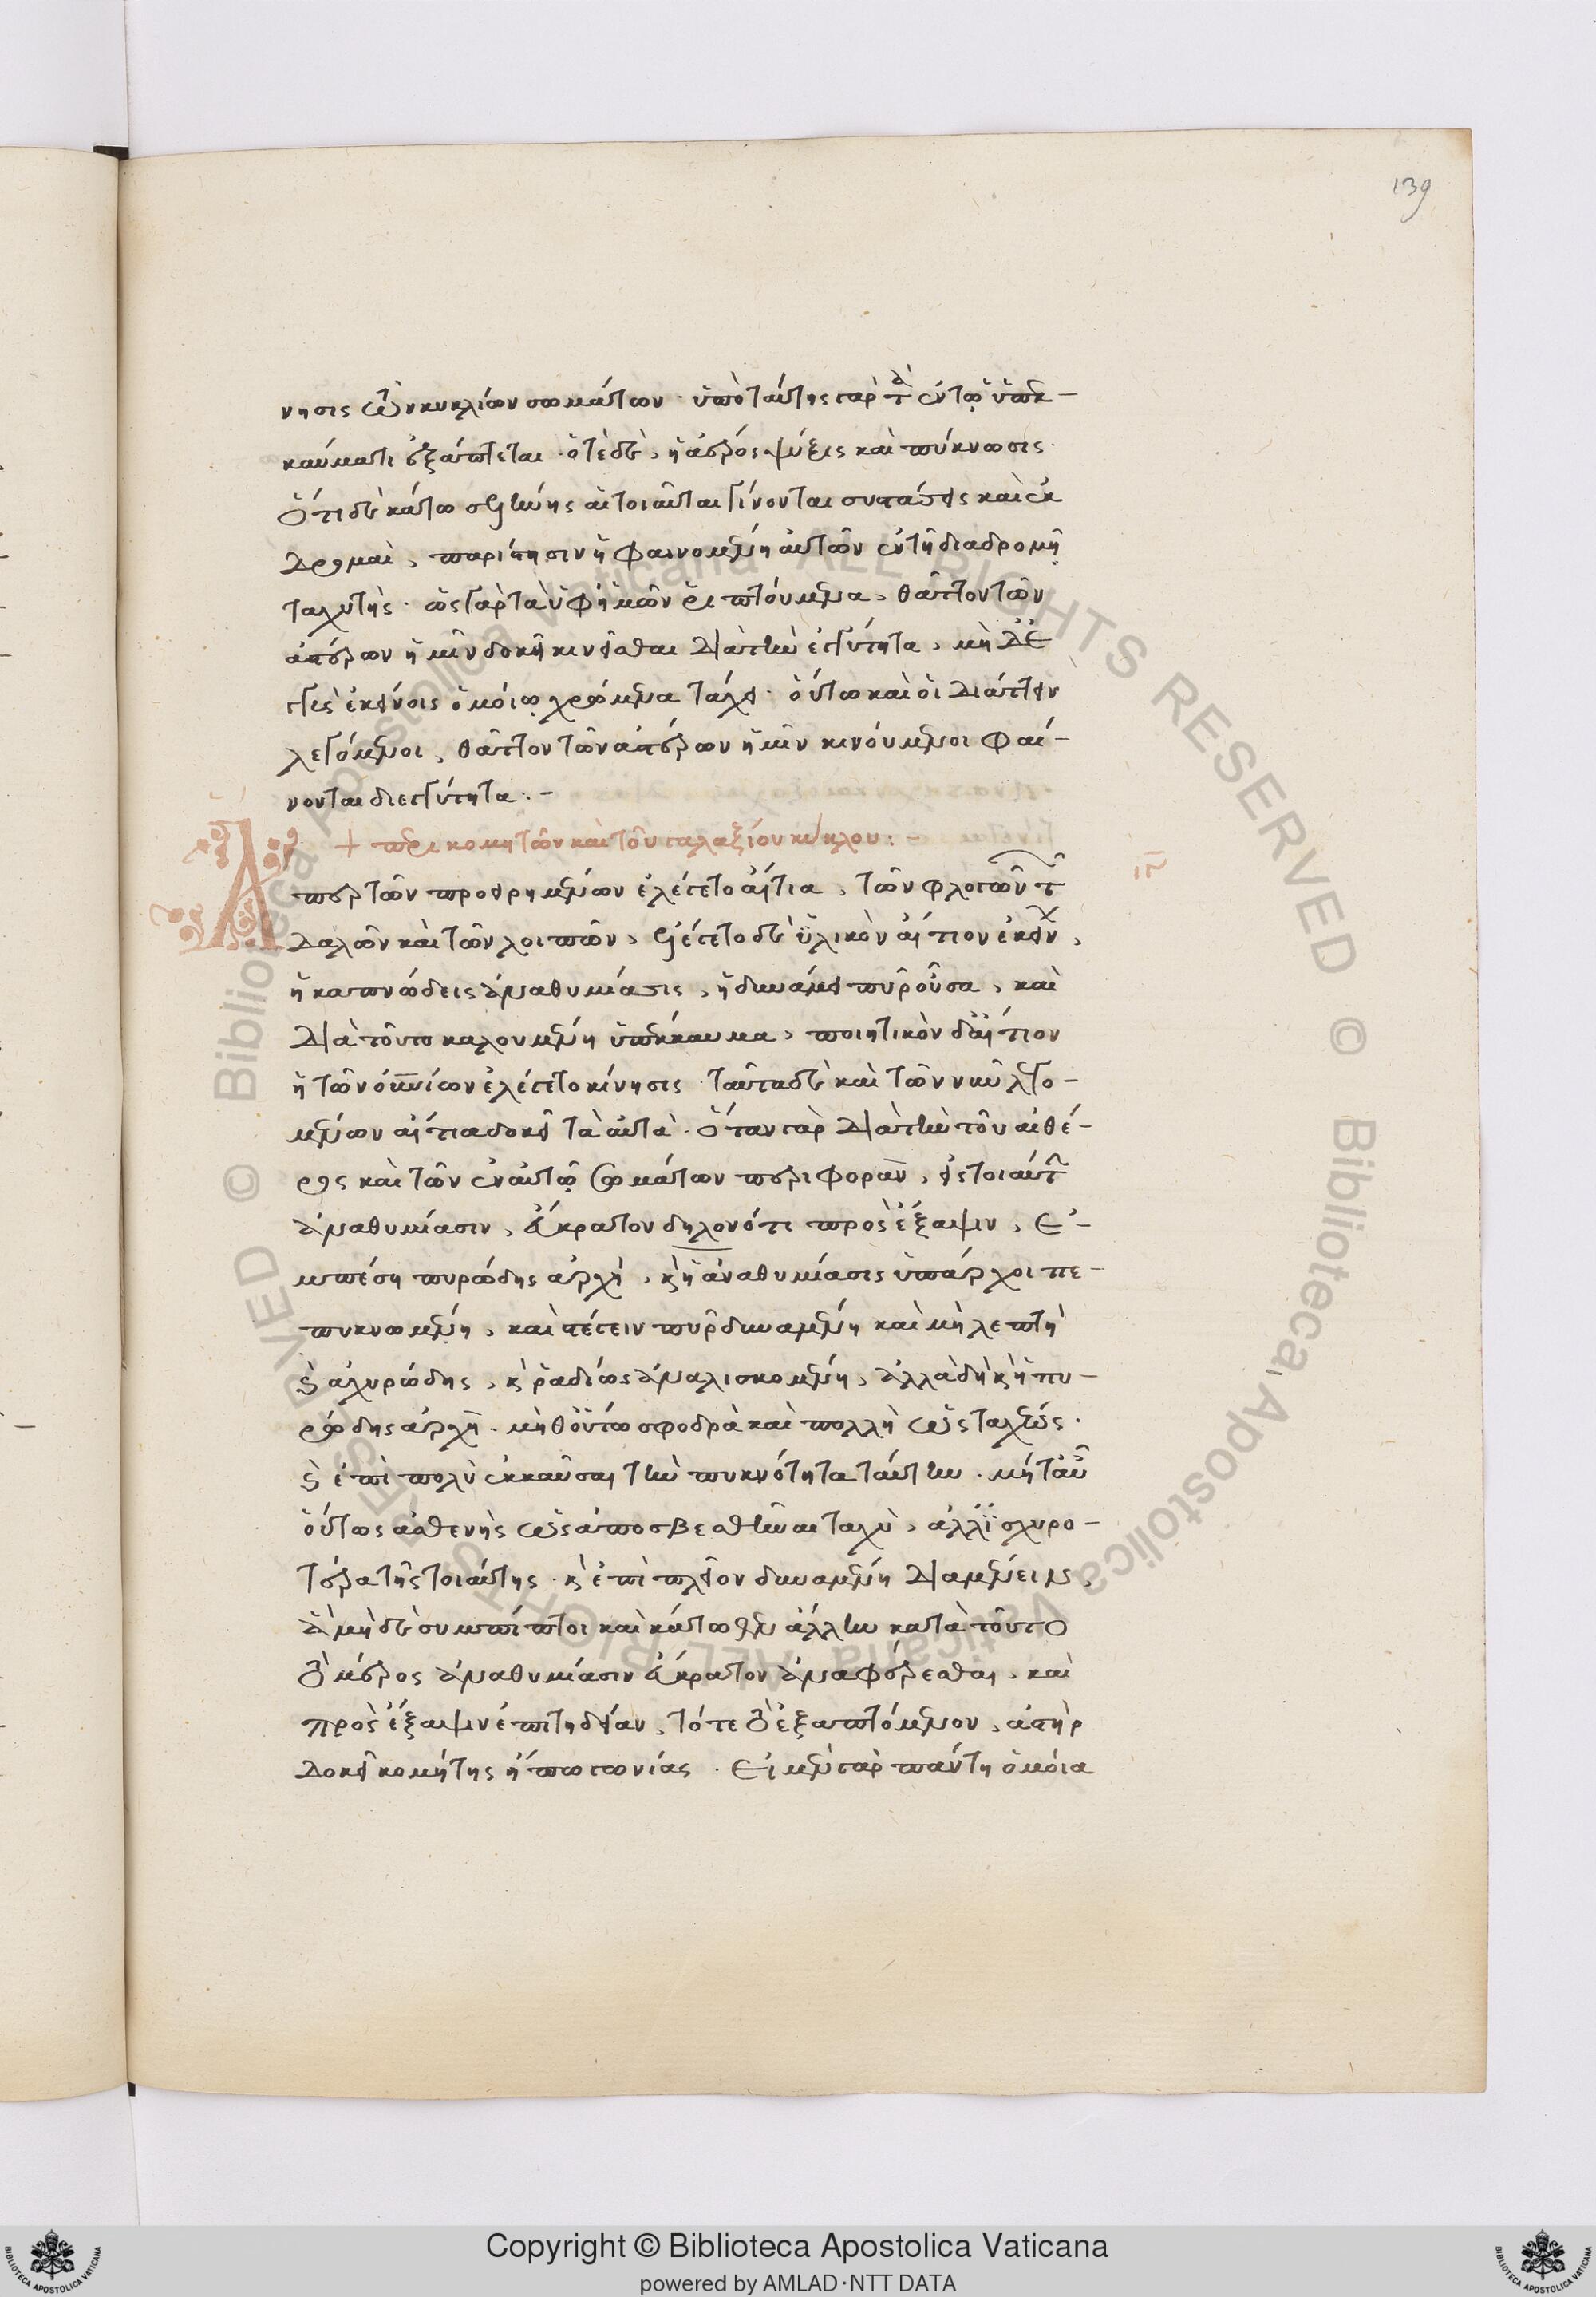 139
νησις τῶν κυκλίων σωμάτων · ὑπὸ ταύτης γὰρ τὰ ἐν τῷ ὑπεκ-
καύματι ἐξάπτεται · ὁτὲ δὲ, ἡ ἀέρος ψύξις καὶ πύκνωσις ·
Ὅτι δὲ κάτω σελήνης αἱ τοιαῦται γίνονται συστάσεις καὶ ἐκ
δρομαὶ, παρίστησιν ἡ φαινομένη αὐτῶν ἐν τῇ διαδρομῇ
ταχυτής · ὡς γὰρ τὰ ὑφ' ἡμῶν ῥιπτούμενα, θᾶττον τῶν
ἀστέρων ἡμῖν δοκεῖ κινεῖσθαι διὰ τὴν ἐγγύτητα, μὴ δὲ
ἐγγὺς ἐκείνοις ὁμοίῳ χρώμενα τάχει · οὕτω καὶ οἱ διάττειν
λεγόμενοι, θᾶττον τῶν ἀστέρων ἡμῖν κινούμενοι φαί-
νονται δι' ἐγγύτητα :-
+ περι κομητῶν καὶ τοῦ γαλαξίου κύκλου :-
ιγ
Ἅπερ τῶν προειρημένων ἐλέγετο αἴτια, τῶν φλογῶν τῶν
δαλῶν καὶ τῶν λοιπῶν, ἐλέγετο δὲ ὑλικὸν αἴτιον ἐκείνων,
ἡ καπνώδεις ἀναθυμίασις, ἡ δυνάμει πῦρ οὖσα, καὶ
διὰ τοῦτο καλουμένη ὑπέκκαυμα, ποιητικὸν δ' αἴτιον
ἡ τῶν οὐρανίων ἐλέγετο κίνησις · ταῦτα δὲ καὶ τῶν νῦν λεγο-
μένων αἴτια δοκεῖ τὰ αὐτὰ · Ὅταν γὰρ διὰ τὴν τοῦ αἰθέ-
ρος καὶ τῶν ἐν αὐτῷ σωμάτων περιφορὰν, εἰς τοιαύτην
ἀναθυμίασιν, εὔκρατον δηλονότι πρὸς ἔξαψιν, ἐ-
μπέσῃ πυρώδης ἀρχὴ, κὴ ἡ ἀναθυμίασις ὑπάρχοι πε-
πυκνωμένη, καὶ στέγειν πῦρ δυναμένη καὶ μὴ λεπτὴ
καὶ ἀχυρώδης, καὶ ῥαδίως ἀναλισκομένη, ἀλλὰ δὴ καὶ ἡ πυ-
ρώδης ἀρχὴ · μήθ' οὕτω σφοδρὰ καὶ πολλὴ ὡς ταχέως ·
καὶ ἐπὶ πολὺ ἐκκαῦσαι τὴν πυκνότητα ταύτην · μήτ' αὖ
οὕτως ἀσθενὴς ὡς ἀποσβεσθῆναι ταχὺ, ἀλλ' ἰσχυρο-
τέρα τῆς τοιαύτης · καὶ ἐπὶ πλεῖον δυναμένη διαμένειν,
ἅμὴ δὲ συμπίπτοι καὶ κάτωθεν ἄλλην κατὰ τοῦτο
τὸ μέρος ἀναθυμίασιν εὔκρατον ἀναφέρεσθαι, καὶ
πρὸς ἔξαψιν ἐπιτηδείαν, τότε τὸ ἐξαπτόμενον, ἀστὴρ
δοκεῖ κομήτης ἢ πωγωνίας · Εἰ μὲν γὰρ πάντη ὁμοία
Copyright © Biblioteca Apostolica Vaticana
powered by AMLAD·NTT DATA